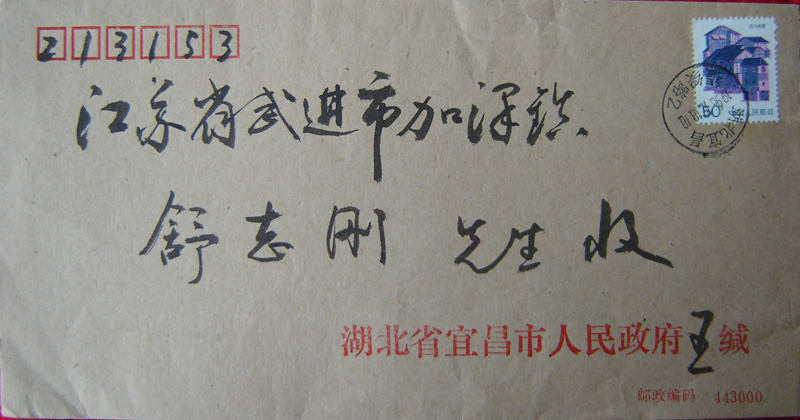 213153
江苏省武进市加泽镇
舒志刚 先生 收
湖北省宜昌市人民政府王缄
邮政编码 443000
50
人民邮政
湖北宜昌